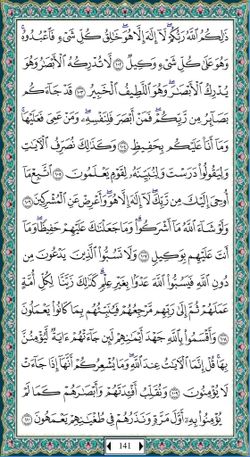 ذَٰلِكُمُ ٱللَّهُ رَبُّكُمْ ۖ لَآ إِلَٰهَ إِلَّا هُوَ ۖ خَٰلِقُ كُلِّ شَىْءٍ فَٱعْبُدُوهُ ۚ
وَهُوَ عَلَىٰ كُلِّ شَىْءٍ وَكِيلٌ ١٠٢ لَّا تُدْرِكُهُ ٱلْأَبْصَٰرُ وَهُوَ
يُدْرِكُ ٱلْأَبْصَٰرَ ۖ وَهُوَ ٱللَّطِيفُ ٱلْخَبِيرُ ١٠٣ قَدْ جَآءَكُم
بَصَآئِرُ مِن رَّبِّكُمْ ۖ فَمَنْ أَبْصَرَ فَلِنَفْسِهِۦ ۖ وَمَنْ عَمِىَ فَعَلَيْهَا ۚ
وَمَآ أَنَا۠ عَلَيْكُم بِحَفِيظٍ ١٠٤ وَكَذَٰلِكَ نُصَرِّفُ ٱلْءَايَٰتِ
وَلِيَقُولُوا۟ دَرَسْتَ وَلِنُبَيِّنَهُۥ لِقَوْمٍ يَعْلَمُونَ ١٠٥ ٱتَّبِعْ مَآ
أُوحِىَ إِلَيْكَ مِن رَّبِّكَ ۖ لَآ إِلَٰهَ إِلَّا هُوَ ۖ وَأَعْرِضْ عَنِ ٱلْمُشْرِكِينَ ١٠٦
وَلَوْ شَآءَ ٱللَّهُ مَآ أَشْرَكُوا۟ ۗ وَمَا جَعَلْنَٰكَ عَلَيْهِمْ حَفِيظًا ۖ وَمَآ
أَنتَ عَلَيْهِم بِوَكِيلٍ ١٠٧ وَلَا تَسُبُّوا۟ ٱلَّذِينَ يَدْعُونَ مِن
دُونِ ٱللَّهِ فَيَسُبُّوا۟ ٱللَّهَ عَدْوًۢا بِغَيْرِ عِلْمٍ ۗ كَذَٰلِكَ زَيَّنَّا لِكُلِّ أُمَّةٍ
عَمَلَهُمْ ثُمَّ إِلَىٰ رَبِّهِم مَّرْجِعُهُمْ فَيُنَبِّئُهُم بِمَا كَانُوا۟ يَعْمَلُونَ
١٠٨ وَأَقْسَمُوا۟ بِٱللَّهِ جَهْدَ أَيْمَٰنِهِمْ لَئِن جَآءَتْهُمْ ءَايَةٌ لَّيُؤْمِنُنَّ
بِهَا ۚ قُلْ إِنَّمَا ٱلْءَايَٰتُ عِندَ ٱللَّهِ ۖ وَمَا يُشْعِرُكُمْ أَنَّهَآ إِذَا جَآءَتْ
لَا يُؤْمِنُونَ ١٠٩ وَنُقَلِّبُ أَفْـِٔدَتَهُمْ وَأَبْصَٰرَهُمْ كَمَا لَمْ
يُؤْمِنُوا۟ بِهِۦٓ أَوَّلَ مَرَّةٍ وَنَذَرُهُمْ فِى طُغْيَٰنِهِمْ يَعْمَهُونَ ١١٠
141